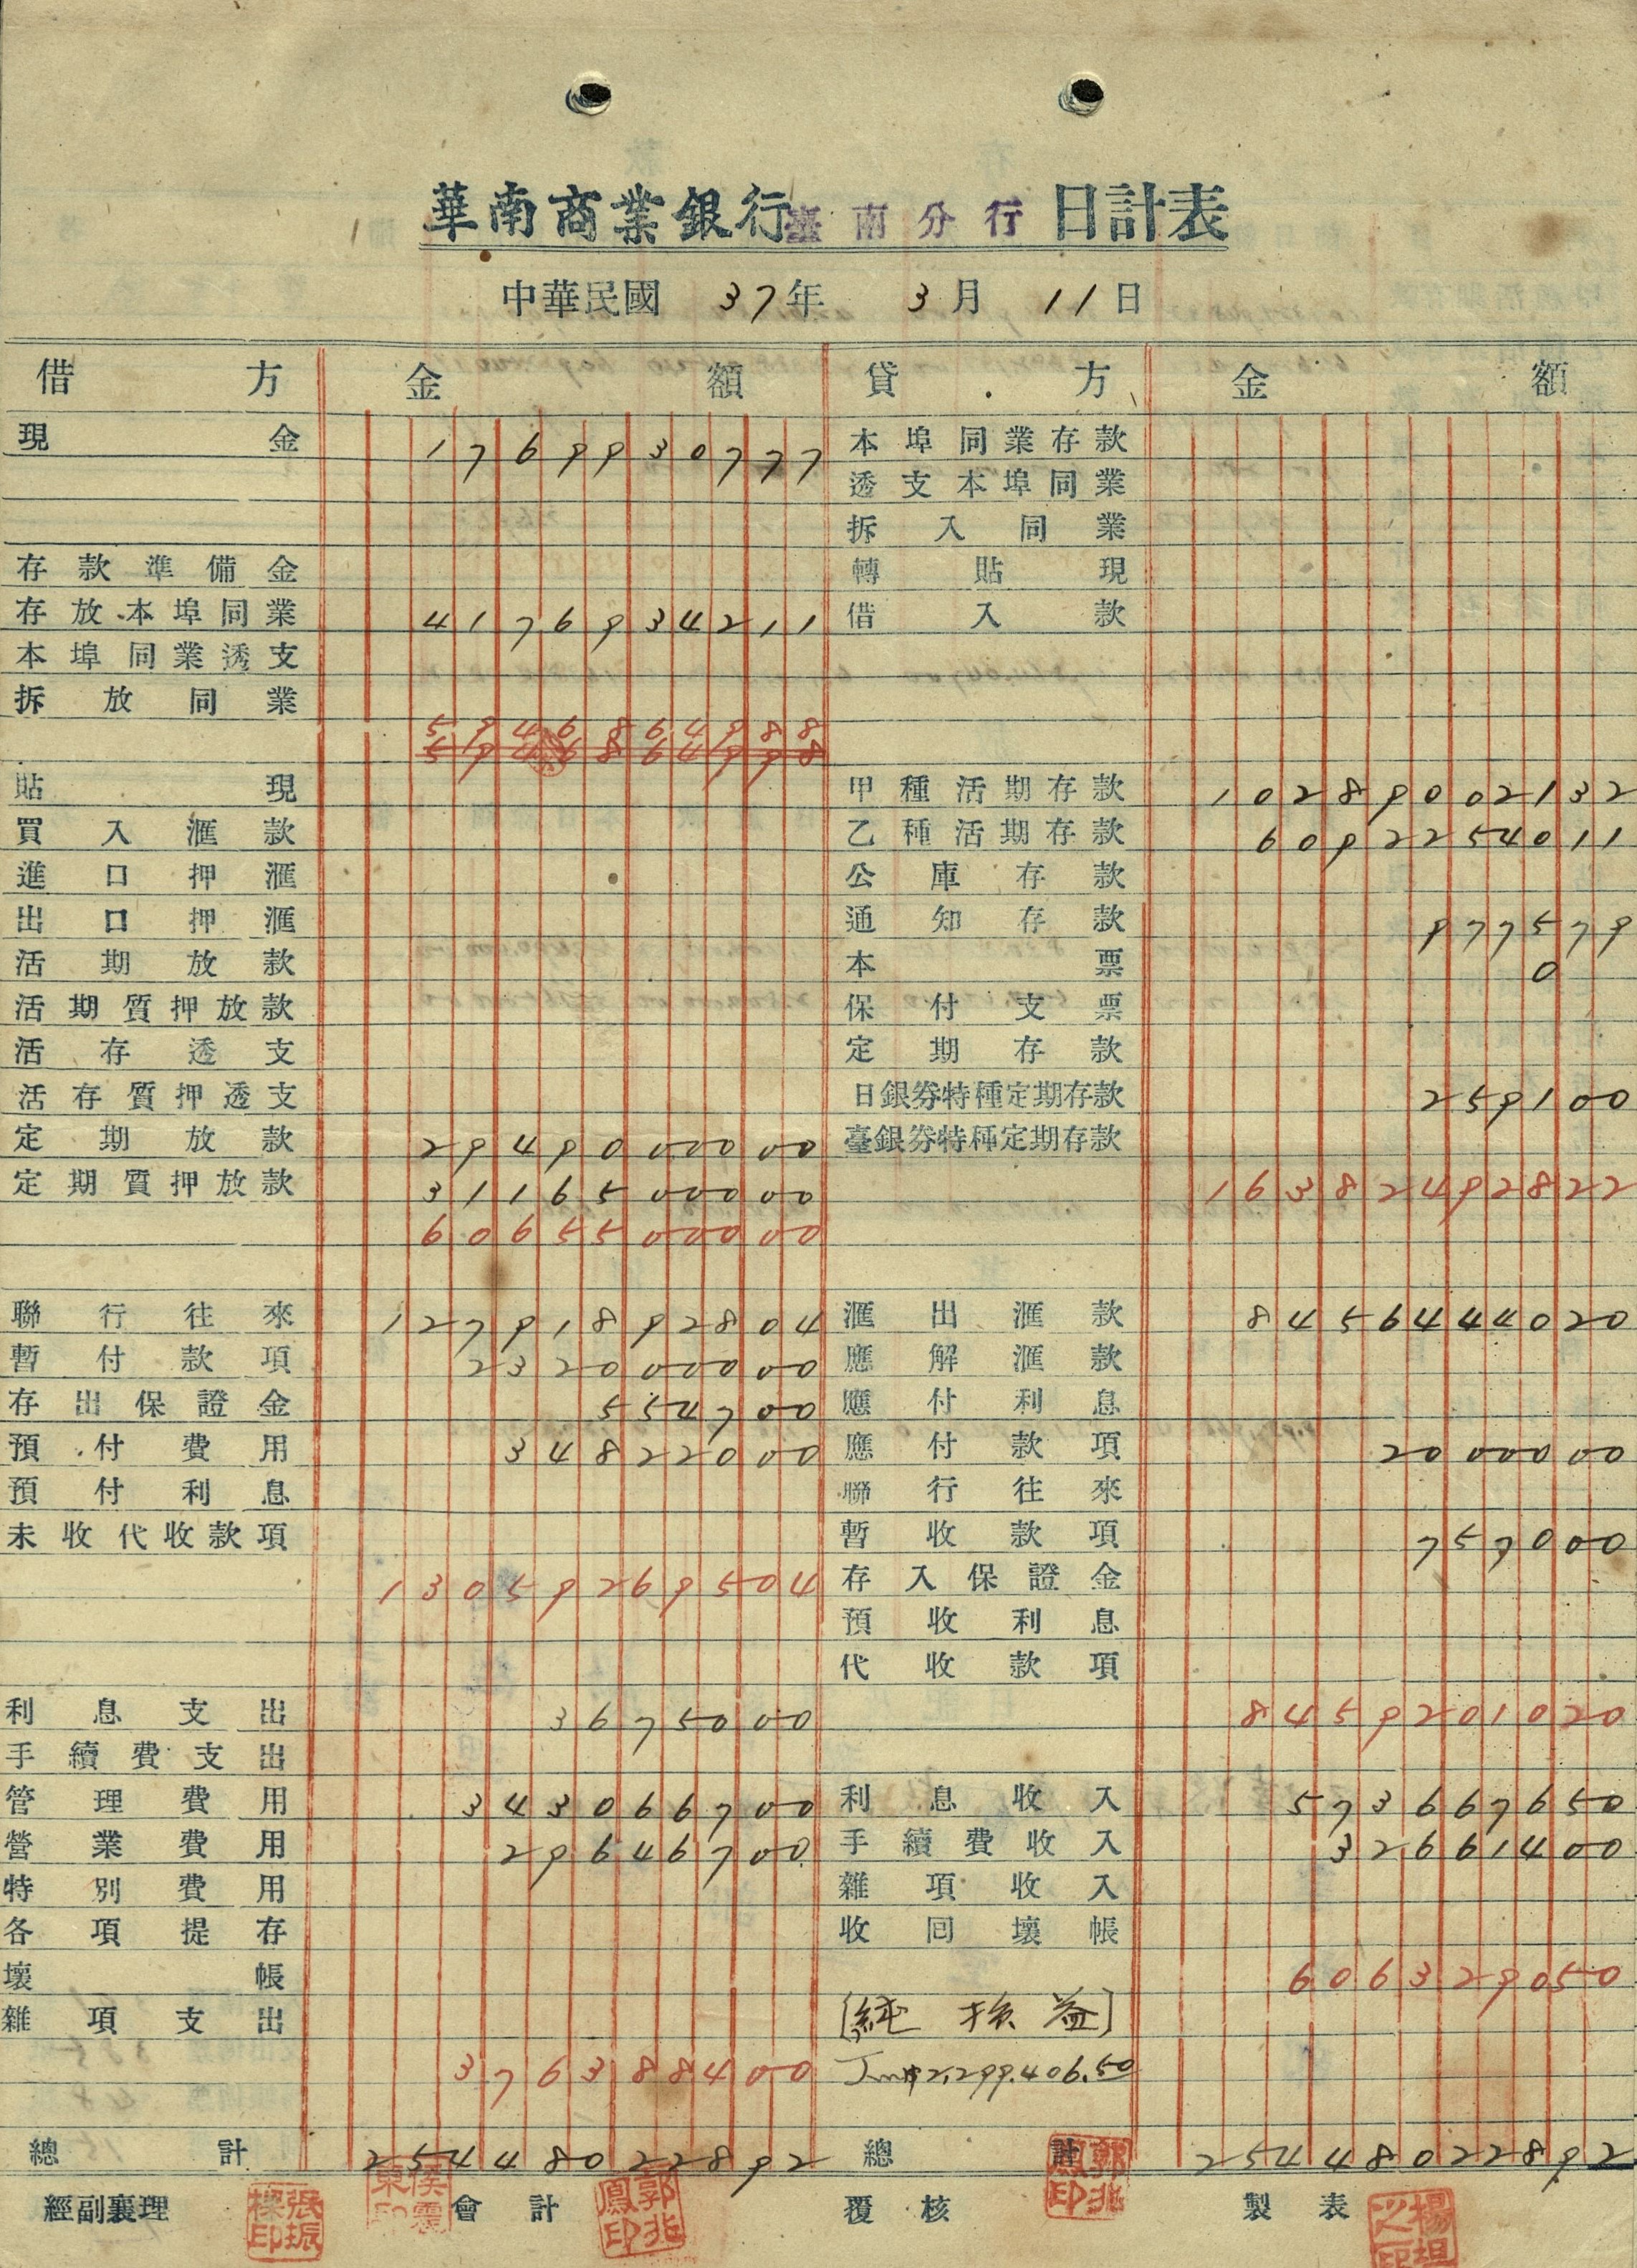 華南商業銀行臺南分行 日計表
中華民國 37年 3月 11日
借方 金額 貸方 金額
現金 1769930777 本埠同業存款
透支本埠同業
拆入同業
存款準備金 轉貼現
存放本埠同業 4176934211 借入款
本埠同業透支
拆放同業
5946864988
5946864998
貼現 甲種活期存款 10289002132
買入滙款 乙種活期存款 6092254011
進口押滙 公庫存款
出口押滙 通知存款 977579
活期放款 本票 0
活期質押放款 保付支票
活存透支 定期存款
活存質押透支 日銀券特種定期存款 259100
定期放款 2949000000 臺銀券特種定期存款
定期質押放款 3116500000 16382492822
6065500000
聯行往來 12791892804 滙出滙款 8456444020
暫付款項 232000000 應解滙款
存出保證金 554700 應付利息
預付費用 34822000 應付款項 2000000
預付利息 聯行往來
未收代收款項 暫收款項 757000
13059269504 存入保證金
預收利息
代收款項
利息支出 3675000 8459201020
手續費支出
管理費用 343066700 利息收入 573667650
營業費用 29646700 手續費收入 32661400
特別費用 雜項收入
各項提存 收回壞帳
壞帳 606329050
雜項支出 [純損益]
376388400 2,299,406.50
總計 25448022892 總計 25448022892
經副襄理 會計 覆核 製表